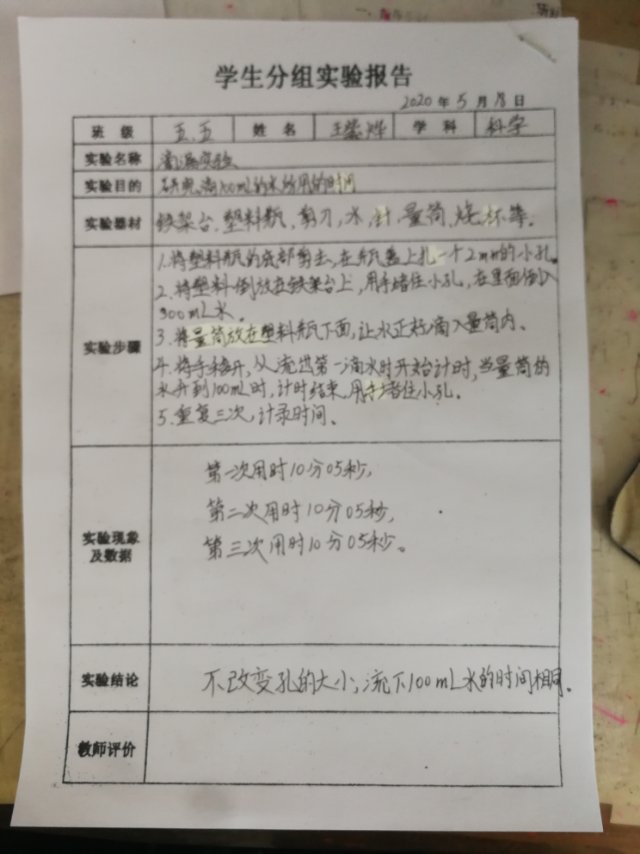 学生分组实验报告
2020年5月18日
班级 五.五 姓名 学科 科学
实验名称 滴漏实验
实验目的 研究滴100mL的水所用的时间
实验器材 铁架台、塑料瓶、剪刀、水、针、量筒、烧杯等。
实验步骤
1.将塑料瓶的底部剪去,在瓶盖上扎一个2mm的小孔。
2.将塑料倒放在铁架台上,用手堵住小孔,在里面倒入
300mL水。
3.将量筒放在塑料瓶下面,让水正好滴入量筒内。
4.将手移开,从流出第一滴水时开始计时,当量筒的
水升到100mL时,计时结束,用手堵住小孔。
5.重复三次,计录时间。
实验现象
及数据
第一次用时10分05秒,
第二次用时10分05秒,
第三次用时10分05秒。
实验结论 不改变孔的大小,流下100mL水的时间相同。
教师评价